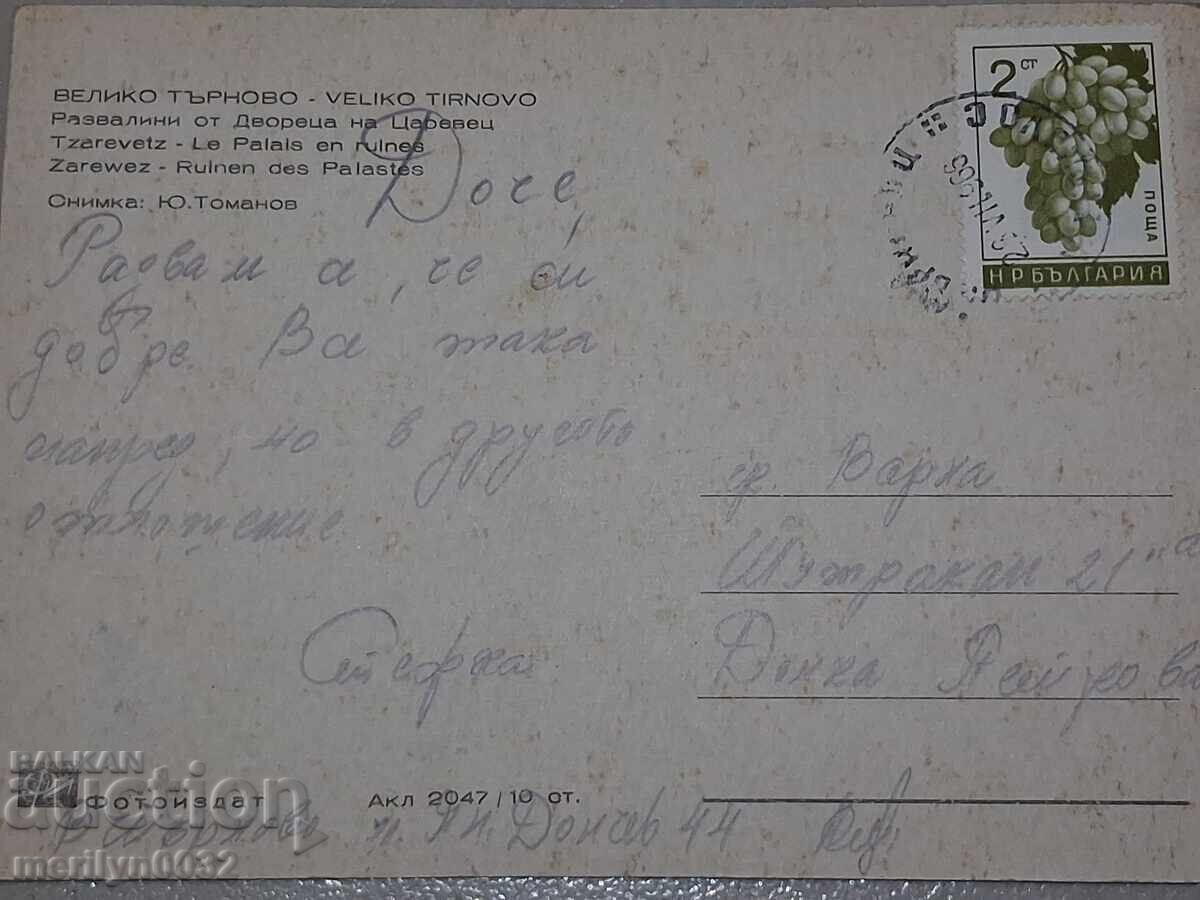 ВЕЛИКО ТЪРНОВО - VELIKO TIRNOVO
Развалини от Двореца на Царевец
Tzarevetz - Le Palais en ruines
Zarewez - Ruinen des Palastes
Снимка: Ю.Томанов
Доче,
Радвам а, че си
добре. Ва така
напред, но в другото
отношение.
Стефка
2 СТ
ПОЩА
НР БЪЛГАРИЯ
гр. Варна
Тутракан 21
Донка Петрова
Фотоиздат
Акл 2047/10 ст.
Дончев 44
BALKAN
auction
merilyn0032